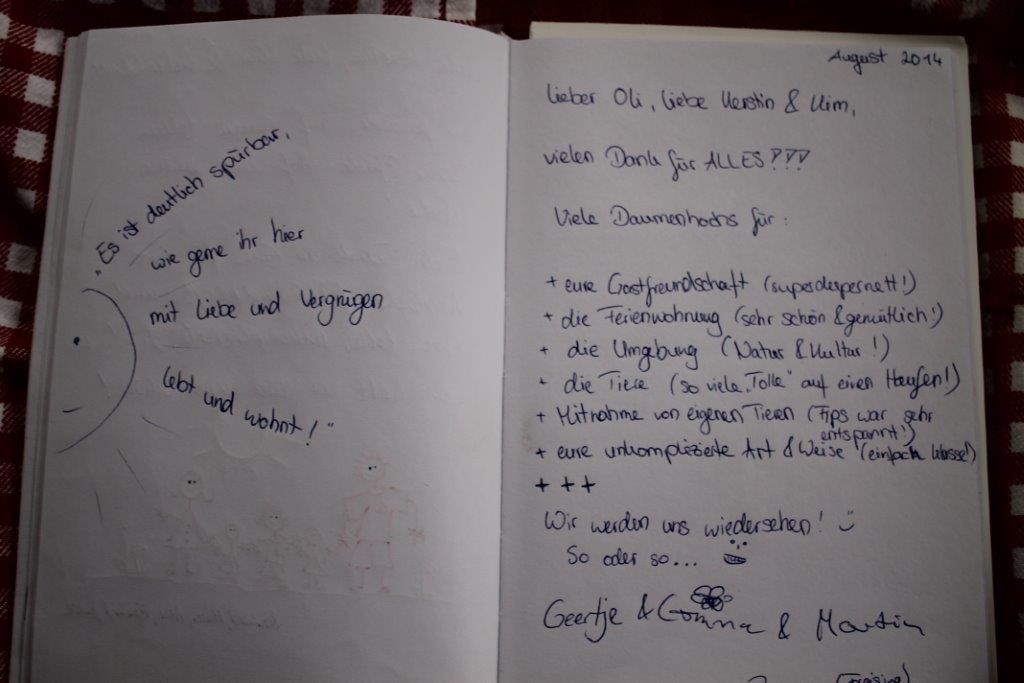 „Es ist deutlich spürbar,
wie gerne ihr hier
mit Liebe und Vergnügen
lebt und wohnt!“
August 2014
Lieber Oli, liebe Kerstin & Kim,
vielen Dank für ALLES!!!
Viele Daumenhochs für:
+ eure Gastfreundschaft (superdupernett!)
+ die Ferienwohnung (sehr schön & gemütlich!)
+ die Umgebung (Natur & Kultur!)
+ die Tiere (so viele „Tolle“ auf einen Haufen!)
+ Mitnahme von eigenen Tieren (Fips war sehr
entspannt!)
+ eure unkomplizierte Art & Weise (einfach klasse!)
+ + +
Wir werden uns wiedersehen!
So oder so...
Geertje & & Martin